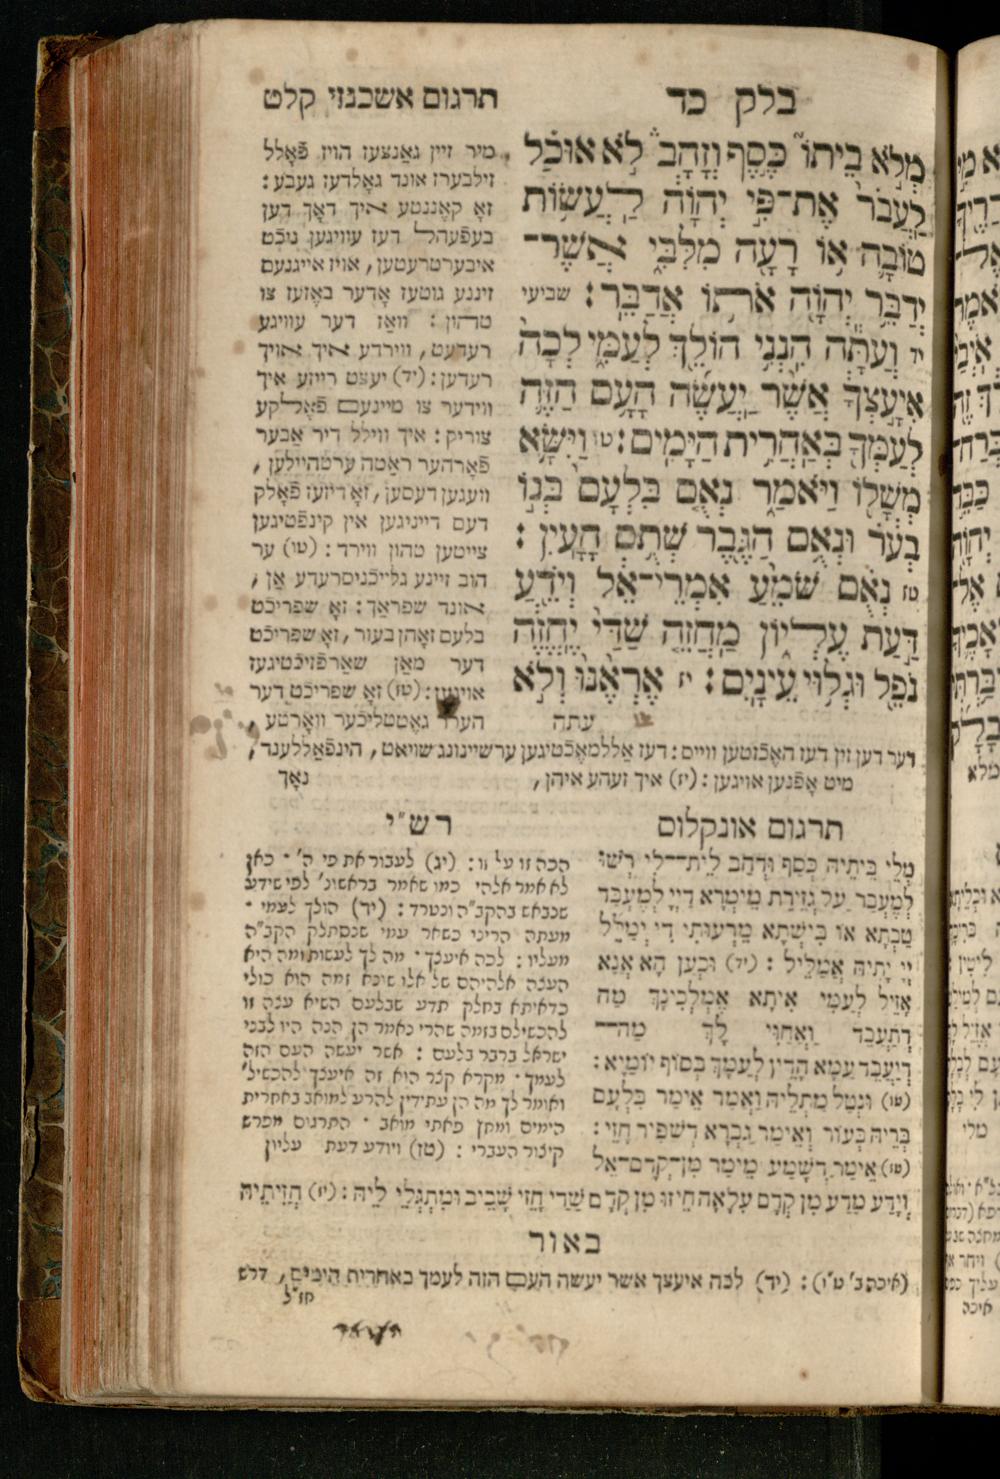 בלק כד
תרגום אשכנזי קלט
מְלֹא בֵיתוֹ כֶּסֶף וְזָהָב לֹא אוּכַל
לַעֲבֹר אֶת־פִּי יְהוָֹה לַעֲשׂוֹת
טוֹבָה אוֹ רָעָה מִלִּבִּי אֲשֶׁר־
יְדַבֵּר יְהוָֹה אֹתוֹ אֲדַבֵּר: שביעי
יד וְעַתָּה הִנְנִי הוֹלֵךְ לְעַמִּי לְכָה
אִיעָצְךָ אֲשֶׁר יַעֲשֶׂה הָעָם הַזֶּה
לְעַמְּךָ בְּאַחֲרִית הַיָּמִים: טו וַיִּשָּׂא
מְשָׁלוֹ וַיֹּאמַר נְאֻם בִּלְעָם בְּנוֹ
בְעֹר וּנְאֻם הַגֶּבֶר שְׁתֻם הָעָיִן:
טז נְאֻם שֹׁמֵעַ אִמְרֵי־אֵל וְיֹדֵעַ
דַּעַת עֶלְיוֹן מַחֲזֵה שַׁדַּי יֶחֱזֶה
נֹפֵל וּגְלוּי עֵינָיִם: יז אֶרְאֶנּוּ וְלֹא
עתה
מיר זיין גאַנצעז הויז פֿאָלל
זילבערז אונד גאָלדעז געבע:
זאָ קאָננטע איך דאָך דען
בעפֿעהל דעז עוויגען ניכֿט
איבערטרעטען, אויז אייגנעם
זיננע גוטעז אָדער באָזעז צו
טהון: וואַז דער עוויגע
רעדעט, ווירדע איך אויך
רעדען: (יד) יעצט רייזע איך
ווידער צו מיינעם פֿאָלקע
צוריק: איך ווילל דיר אַבער
פֿאָרהער ראַטה ערטהיילען,
וועגען דעסען, זאָ דיזעז פֿאָלק
דעם דייניגען אין קינפֿטיגען
צייטען טהון ווירד: (טו) ער
הוב זיינע גלייכֿניסרעדע אַן,
אונד שפראַך: זאָ שפריכֿט
בלעם זאָהן בעור, זאָ שפריכֿט
דער מאַן שאַרפֿזיכֿטיגעז
אויגען: (טז) זאָ שפריכֿט דער
הערר געטטליכֿער וואָרטע,
דער דען זין דעז האָכֿזטען ווייס: דעז אַללמאָכֿטיגען ערשיינונג שויאט, הינפֿאַללענד,
מיט אָפֿנען אויגען: (יז) איך זעהע איהן, נאָך
תרגום אונקלוס
מְלֵי בֵיתֵיהּ כְּסַף וּדְהַב לֵית־לִי רְשׁוּ
לְמֶעְבַּר עַל גְּזֵירַת מֵימְרָא דַיְיָ לְמֶעְבַּד
טַבְתָא אוֹ בִישְׁתָא מֵרְעוּתִי דִּי יְמַלֵּל
יְיָ יָתֵיהּ אֲמַלֵּיל: (יד) וּכְעַן הָא אֲנָא
אָזֵיל לְעַמִּי אִיתָא אֶמְלְכִינָּךְ מַה
דְּתַעְבֵּד וַאֲחַוֵּי לָךְ מַה־
דְּיַעְבֵּד עַמָּא הָדֵין לְעַמָּךְ בְּסוֹף יוֹמַיָּא:
(טו) וּנְטַל מַתְלֵיהּ וַאֲמַר אֵימַר בִּלְעָם
בְּרֵיהּ בְּעוֹר וְאֵימַר גַּבְרָא דְשַׁפִּיר חָזֵי:
(טז) אֵימַר דְּשָׁמַע מֵימַר מִן־קֳדָם־אֵל
וְיָדַע מַדַּע מִן קֳדָם עִלָּאָה חֵיזוּ מִן קֳדָם שַׁדַּי חָזֵי שָׁכֵיב וּמִתְגְּלֵי לֵיהּ: (יז) חֲזֵיתֵיהּ
רש"י
הכה זו על זו: (יג) לעבור את פי ה'. כאן
לא אמר אלהי כמו שאמר בראשונ' לפי שידע
שנבאש בהקב"ה ונטרד: (יד) הולך לעמי.
מעתה הריני כשאר עמי שנסתלק הקב"ה
מעליו: לכה איעצך. מה לך לעשות ומה היא
העצה אלהיהם של אלו שונא זמה הוא כולי
כדאיתא בחלק תדע שבלעם השיא עצה זו
להכשילם בזמה שהרי נאמר הן הנה היו לבני
ישראל בדבר בלעם: אשר יעשה העם הזה
לעמך. מקרא קצר הוא זה איעצך להכשיל'
ואומר לך מה הן עתידין להרע למואב באחרית
הימים ומחץ פאתי מואב. התרגום מפרש
קיצור העברי: (טז) ויודע דעת עליון
באור
(איכה ב' ט"ו): (יד) לכה איעצך אשר יעשה העם הזה לעמך באחרית הימים, דרש
חז"ל